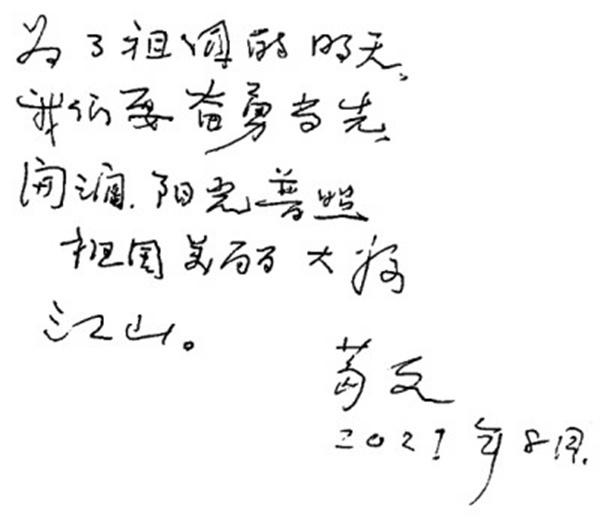 为了祖国的明天、
我们要奋勇当先、
阳光普照
祖国美丽大好
江山。
文
2021年8月.